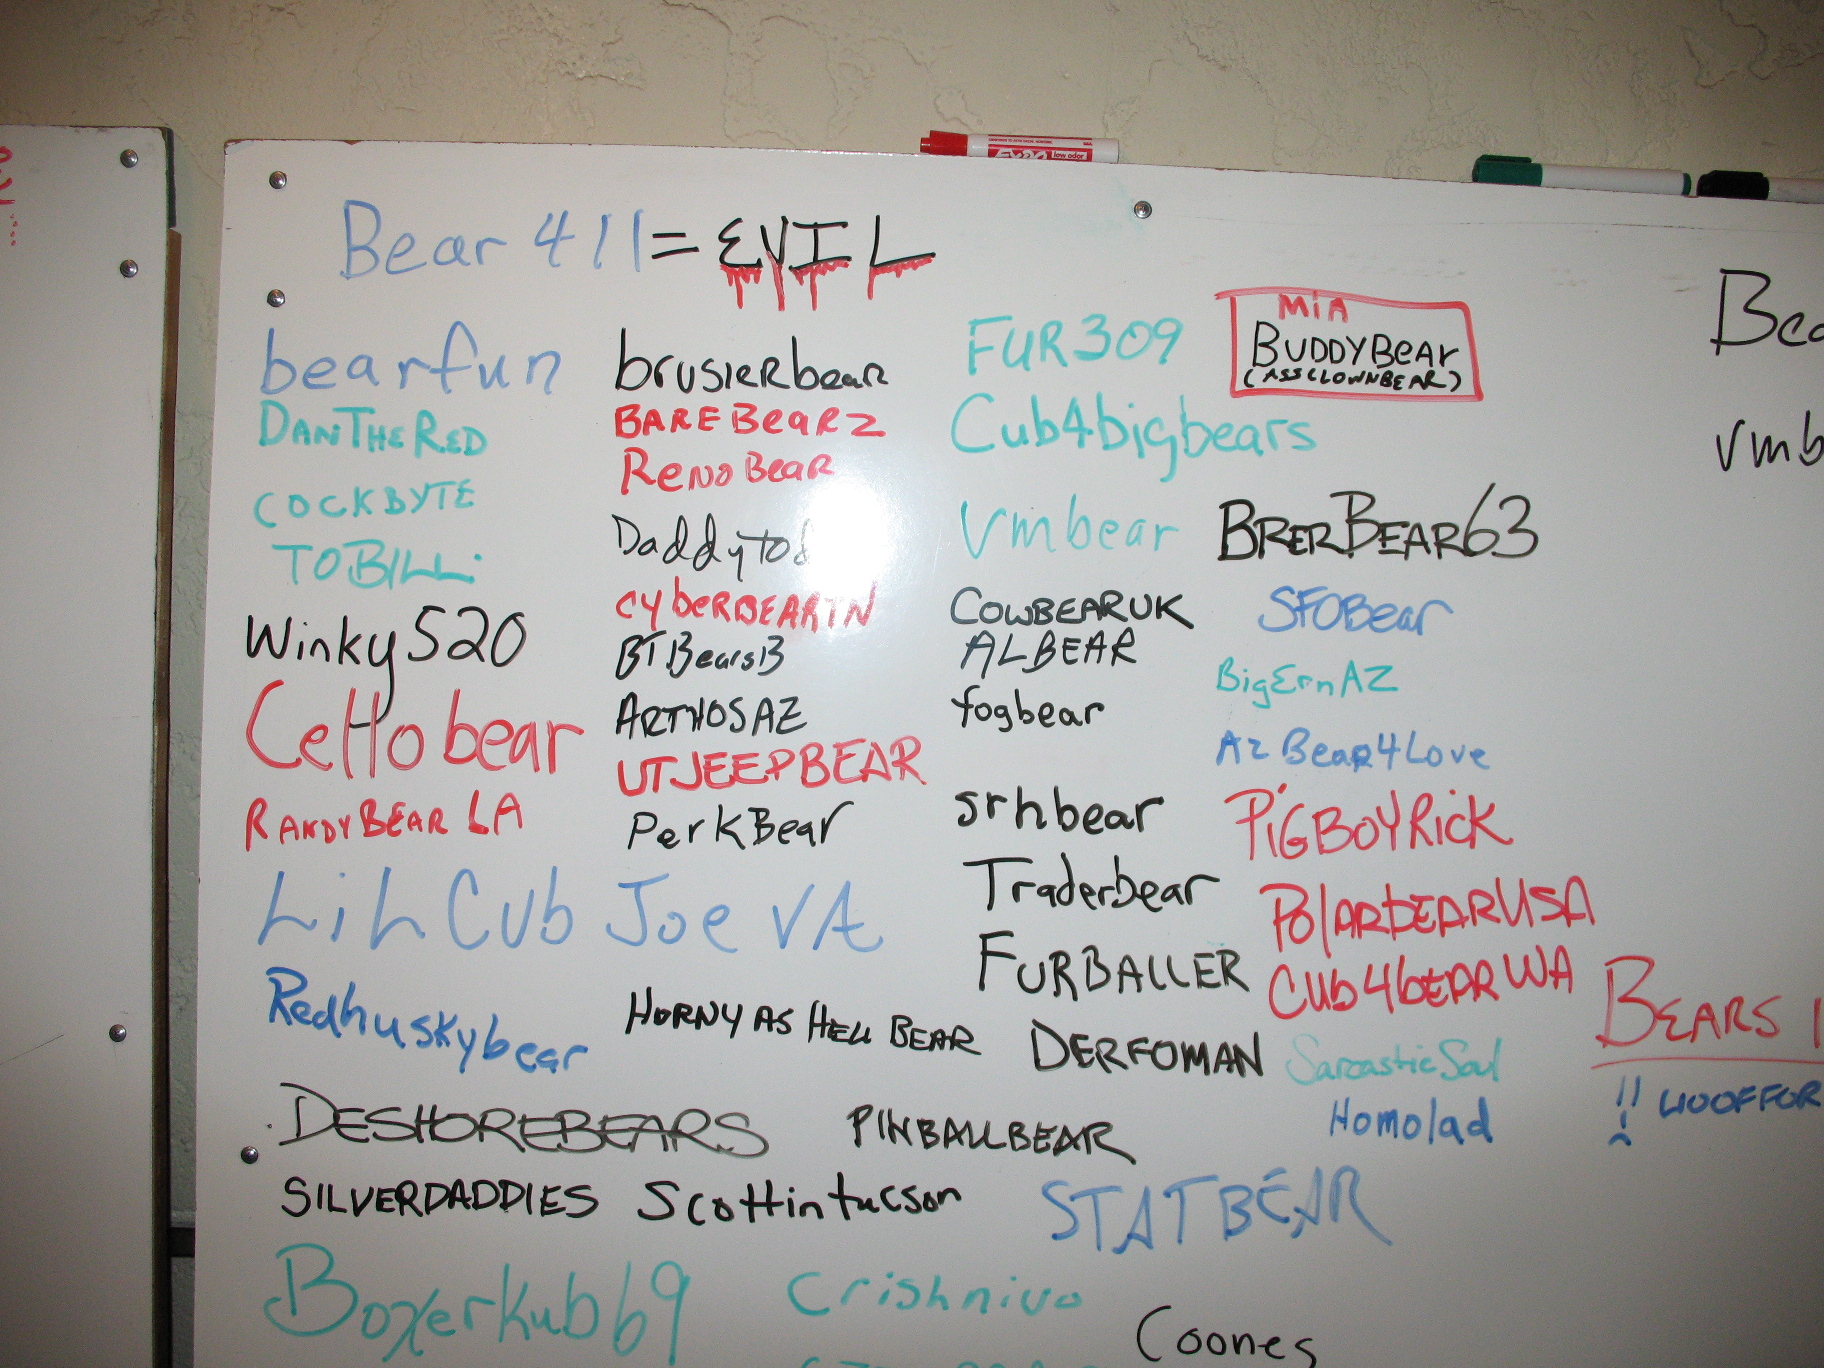 EXPO low odor
Bear 411 = EVIL
bearfun
DANTHERED
COCKBYTE
TOBILL
Winky520
Cellobear
RANDYBEARLA
LiL Cub Joe VA
Redhuskybear
brusierbear
BAREBEARZ
RENOBEAR
cyberBEARTN
BTBearsB
ARTHOSAZ
UTJEEPBEAR
PerkBear
HORNY AS HELL BEAR
FUR309
Cub4bigbears
Vmbear
COWBEARUK
ALBEAR
fogbear
srhbear
Traderbear
FURBALLER
DERFOMAN
MIA
BUDDYBEAR
(ASSCLOWNBEAR)
BRERBEAR63
SFOBear
BigErnAZ
AzBear4Love
PiGBOYRicK
POlARbEARUSA
CUb4bEARWA
SarcasticSoul
Homolad
DESHOREBEARS PINBALLBEAR
SILVERDADDIES Scottintucson STATBEAR
Boxerkub69 Crishnivo
Coones
vmb
BEARS
!! WOOFFOR